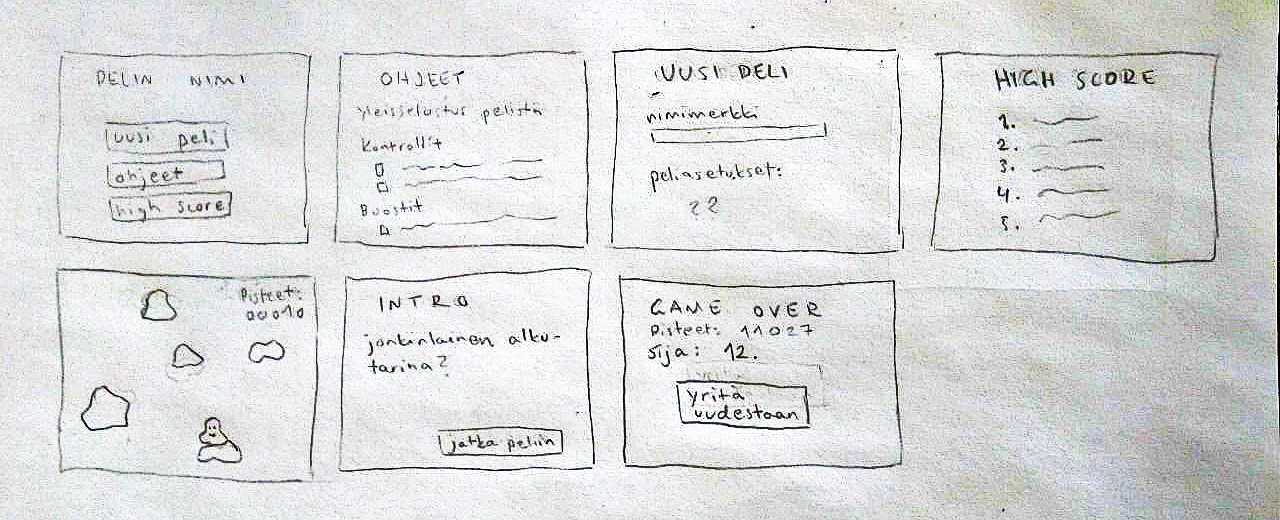 PELIN NIMI
uusi peli
ohjeet
high score
OHJEET
yleisselostus pelistä
Kontrollit
Boostit
UUSI PELI
nimimerkki
peliasetukset:
??
HIGH SCORE
1.
2.
3.
4.
5.
Pisteet:
00010
INTRO
jonkinlainen alku-
tarina?
jatka peliin
GAME OVER
Pisteet: 11027
Sija: 12.
yritä
uudestaan